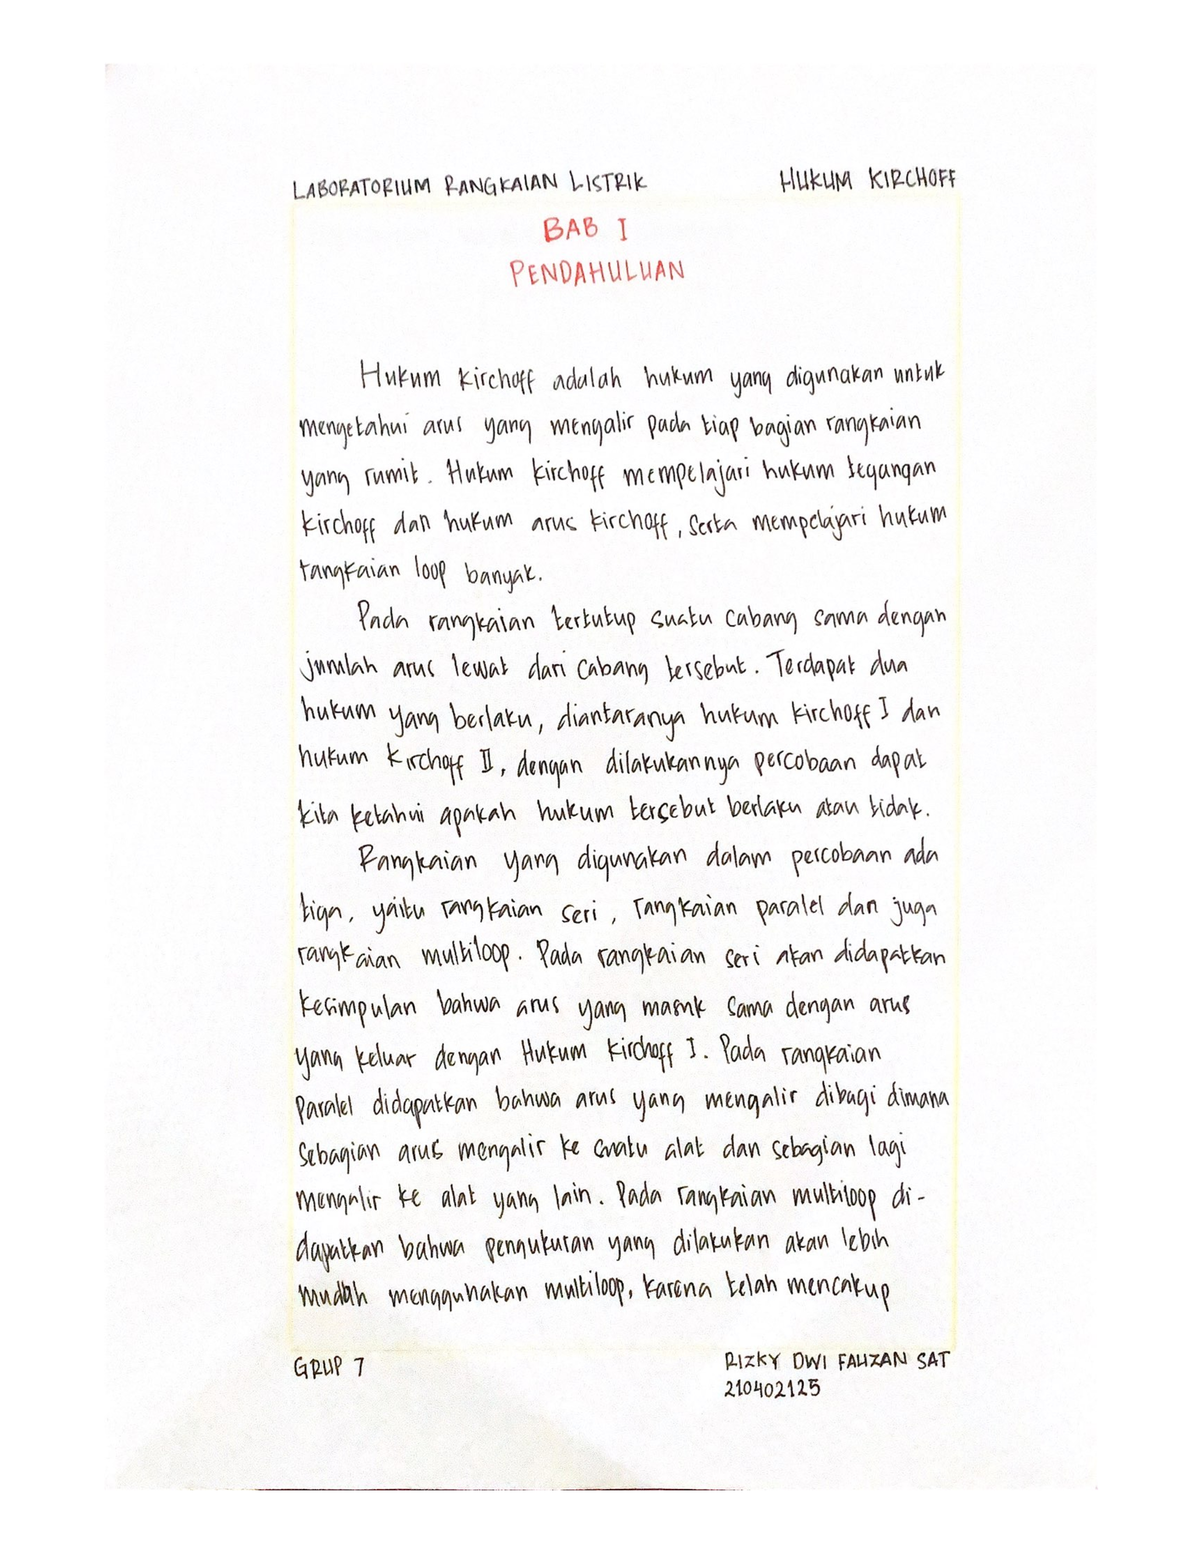 LABORATORIUM RANGKAIAN LISTRIK HUKUM KIRCHOFF
BAB I
PENDAHULUAN
Hukum kirchoff adalah hukum yang digunakan untuk
mengetahui arus yang mengalir pada tiap bagian rangkaian
yang rumit. Hukum kirchoff mempelajari hukum tegangan
kirchoff dan hukum arus kirchoff, serta mempelajari hukum
rangkaian loop banyak.
Pada rangkaian tertutup suatu cabang sama dengan
jumlah arus lewat dari cabang tersebut. Terdapat dua
hukum yang berlaku, diantaranya hukum kirchoff I dan
hukum kirchoff II, dengan dilakukannya percobaan dapat
kita ketahui apakah hukum tersebut berlaku atau tidak.
Rangkaian yang digunakan dalam percobaan ada
tiga, yaitu rangkaian seri, rangkaian paralel dan juga
rangkaian multiloop. Pada rangkaian seri akan didapatkan
kesimpulan bahwa arus yang masuk sama dengan arus
yang keluar dengan Hukum kirchoff I. Pada rangkaian
Paralel didapatkan bahwa arus yang mengalir dibagi dimana
sebagian arus mengalir ke suatu alat dan sebagian lagi
mengalir ke alat yang lain. Pada rangkaian multiloop di-
dapatkan bahwa pengukuran yang dilakukan akan lebih
mudah menggunakan multiloop, karena telah mencakup
GRUP 7 RIZKY DWI FAUZAN SAT
210402125